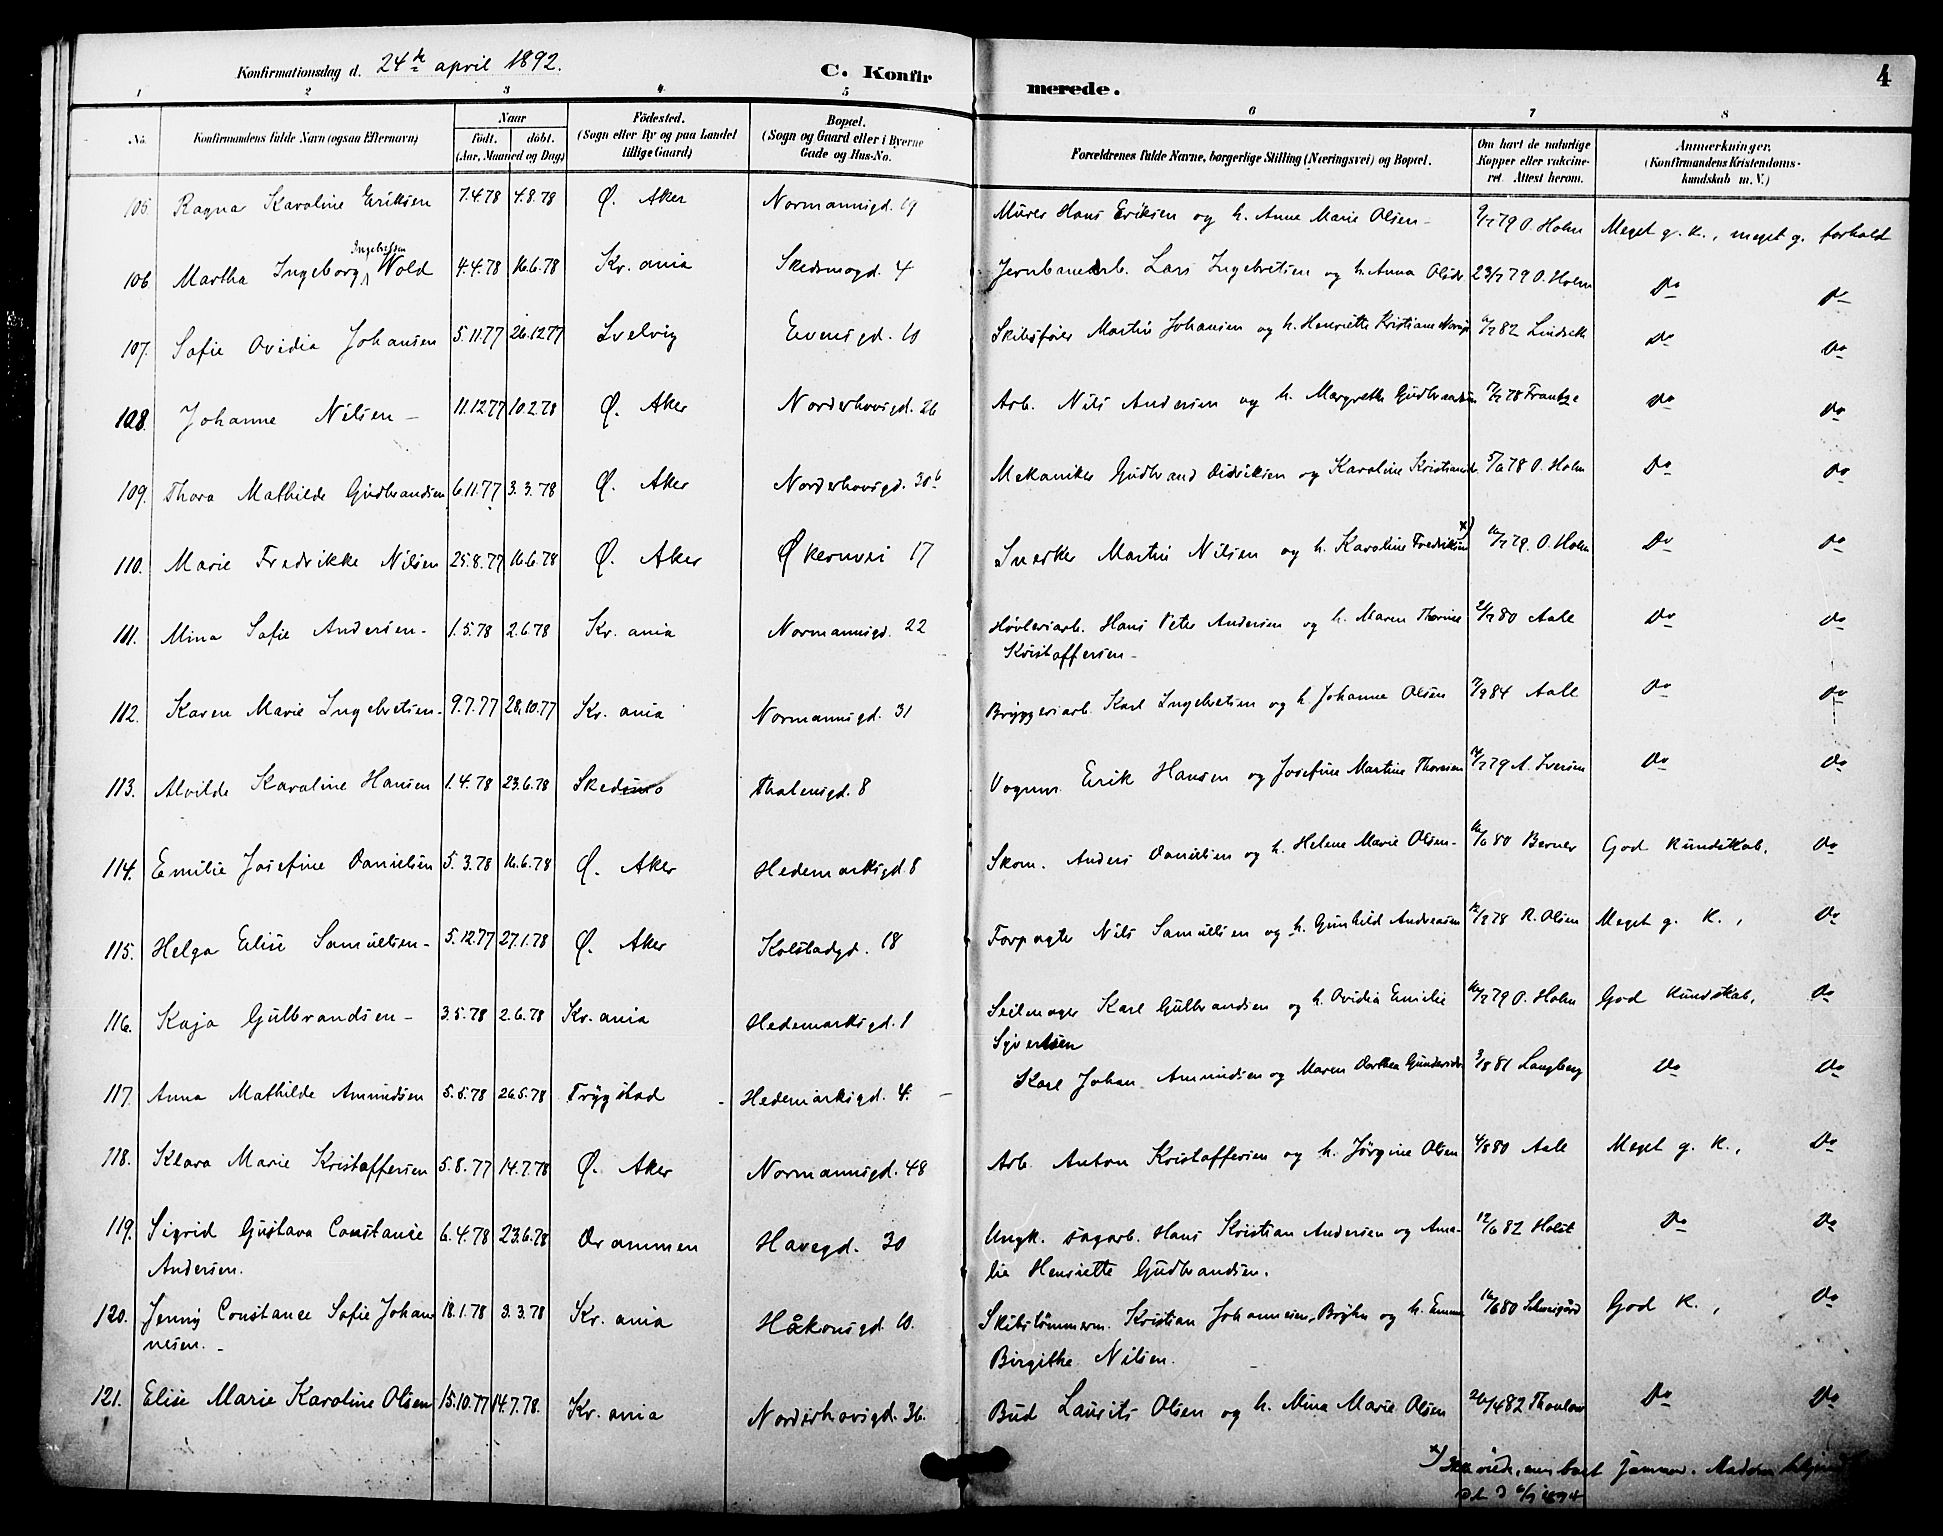 4
Konfirmationsdag d. 24de april 1892. C. Konfirmerede.
1 2 3 4 5 6 7 8
No. Konfirmandens fulde Navn (ogsaa Efternavn) Naar födt. döbt. (Aar, Maaned og Dag) Födested. (Sogn eller By og paa Landet tillige Gaard) Bopæl. (Sogn og Gaard eller i Byerne Gade og Hus-No. Forældrenes fulde Navne, borgerlige Stilling (Næringsvei) og Bopæl. Om havt de naturlige Kopper eller vakcineret. Attest herom. Anmærkninger. (Konfirmandens Kristendomskundskab m. V.)
105. Ragna Karoline Eriksen 7.4.78 4.8.78 Ø. Aker Normannsgd. 19 Murer Hans Eriksen og h. Anne Marie Olsen - 9/7 79 O. Holm Meget g. K., meget g. forhold
Ingebretsen
106 Martha Ingeborg Wold 4.4.78 16.6.78 Kr.ania Skedsmogd. 4 Jernbanearb. Lars Ingebretsen og h. Anna Olsdr 23/7 79 O. Holm Do Do
107. Sofie Ovidia Johansen 5.11.77 26.12.77 Svelvig Evensgd. 10 Skibsfører Martin Johansen og h. Henriette Kristiane /7 82 Do Do
108. Johanne Nilsen - 11.12.77 10.2.78 Ø. Aker Norderhovsgd. 26 Arb. Nils Andersen og h. Margrethe Gudbrandsen 78 Frantze Do Do
109. Thora Mathilde Gudbrandsen 6.11.77 3.3.78 Ø. Aker Norderhovsgd. 30b Mekaniker Gudbrand Didriksen og Karoline Kristiansdr 5/6 78 O. Holm Do Do
110. Marie Fredrikke Nilsen 25.8.77 16.6.78 Ø. Aker Økernvei 17 Snerker Martin Nilsen og h. Karoline Fredriksen x) 79. O. Holm Do Do
111. Mina Sofie Andersen - 1.5.78 2.6.78 Kr.ania Normannsgd. 22 Høvleriarb. Hans Peter Andersen og h. Maren Thorine 80 Aall Do Do
Kristoffersen -
112. Karen Marie Ingebretsen - 9.7.77 28.10.77 Kr.ania Normannsgd. 31 Bryggeriarb. Karl Ingebretsen og h. Johanne Olsen 7/9 84 Aall Do Do
113. Alvilde Karoline Hansen 1.4.78 23.6.78 Skedsmo Thalensgd. 8 Vognm. Erik Hansen og Josefine Martine Thoresen 79 A. Iversen Do Do
114. Emilie Josefine Danielsen 5.3.78 16.6.78 Ø. Aker Hedemarksgd 8 Skom. Anders Danielsen og h. Helene Marie Olsen - /6 80 Berner God kundskab, Do
115. Helga Elise Samuelsen - 5.12.77 27.1.78 Ø. Aker Kolstadgd. 18 Forpagter Nils Samuelsen og h. Gunhild Andreasen 78 R. Olsen Meget g. K., Do
116. Kaja Gulbrandsen - 3.5.78 2.6.78 Kr.ania Hedemarksgd. 1 Seilmager Karl Gulbrandsen og h. Ovidia Emilie 79 O. Holm God kundskab, Do
Syvertsen
117. Anna Mathilde Amundsen 5.5.78 26.5.78 Trygstad - Hedemarksgd. 4. - Karl Johan Amundsen og Maren Dorthea Gundersdr 3/8 81 Langberg Do Do
118. Klara Marie Kristoffersen 5.8.77 14.7.78 Ø. Aker Normannsgd. 48 Arb. Anton Kristoffersen og h. Jørgine Olsen 4/8 80 Aall Meget g. K., Do
119. Sigrid Gustava Constance 6.4.78 23.6.78 Drammen Havegd. 30 Ungk. sagarb. Hans Kristian Andersen og Ama- 12/6 82 Holst Do Do
Andersen. lie Henriette Gudbrandsen.
120. Jenny Constance Sofie Johan 18.1.78 3.3.78 Kr.ania Håkonsgd. 10. Skibstømmerm. Kristian Johannesen, Bryhn og h. Emma 80 God K., Do
nesen. - Birgithe Nilsen.
121. Elise Marie Karoline Olsen 15.10.77 14.7.78. Kr.ania Norderhovsgd. 36. Bud Laurits Olsen og h. Mina Marie Olsen 20/4 82 Thaulow Do Do
x) Ikke viede, men boet sammen.